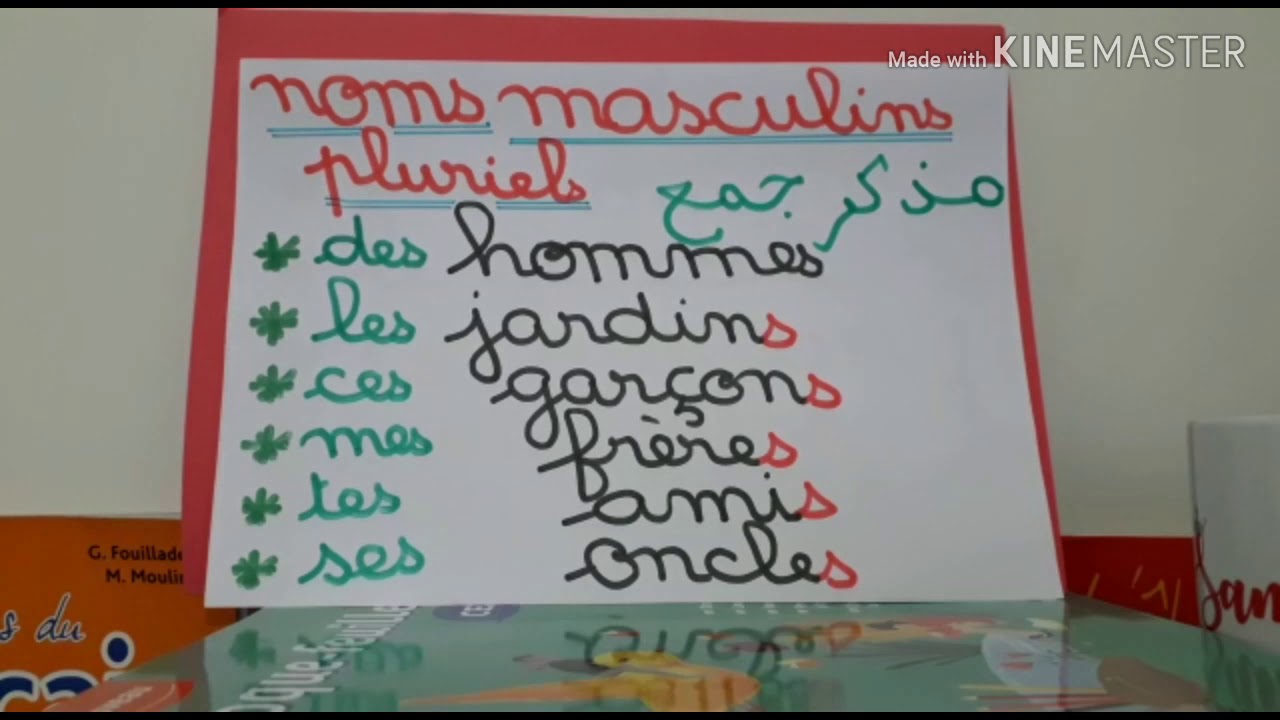 Made with KINEMASTER
noms masculins
pluriels مذكر جمع
* des hommes
* les jardins
* ces garçons
* mes frères
* tes amis
* ses oncles
G. Fouillade
M. Moulin
s du